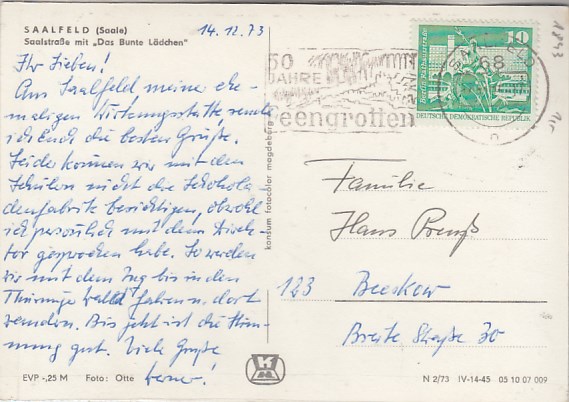 SAALFELD (Saale)
Saalstraße mit „Das Bunte Lädchen"
14.12.73
Ihr Lieben!
Aus Saalfeld meine ehe-
maligen Wirkungsstätte sende
ich euch die besten Grüße.
Leider können wir mit den
Schülern nicht die Schokola-
denfabrik besichtigen, obwohl
ich persönlich mit dem Direk-
tor gesprochen habe. So werden
wir mit dem Zug bis in den
Thüringer Wald fahren u. dort
wandern. Bis jetzt ist die Stim-
mung gut. Viele Grüße
Werner!
EVP -,25 M Foto: Otte
konsum fotocolor magdeburg
50
JAHRE
Feengrotten
68
10
Berlin, Rathausstraße
DEUTSCHE DEMOKRATISCHE REPUBLIK
1843
Familie
Hans Preuß
123 Beeskow
Breite Straße 30
N 2/73 IV-14-45 05 10 07 009